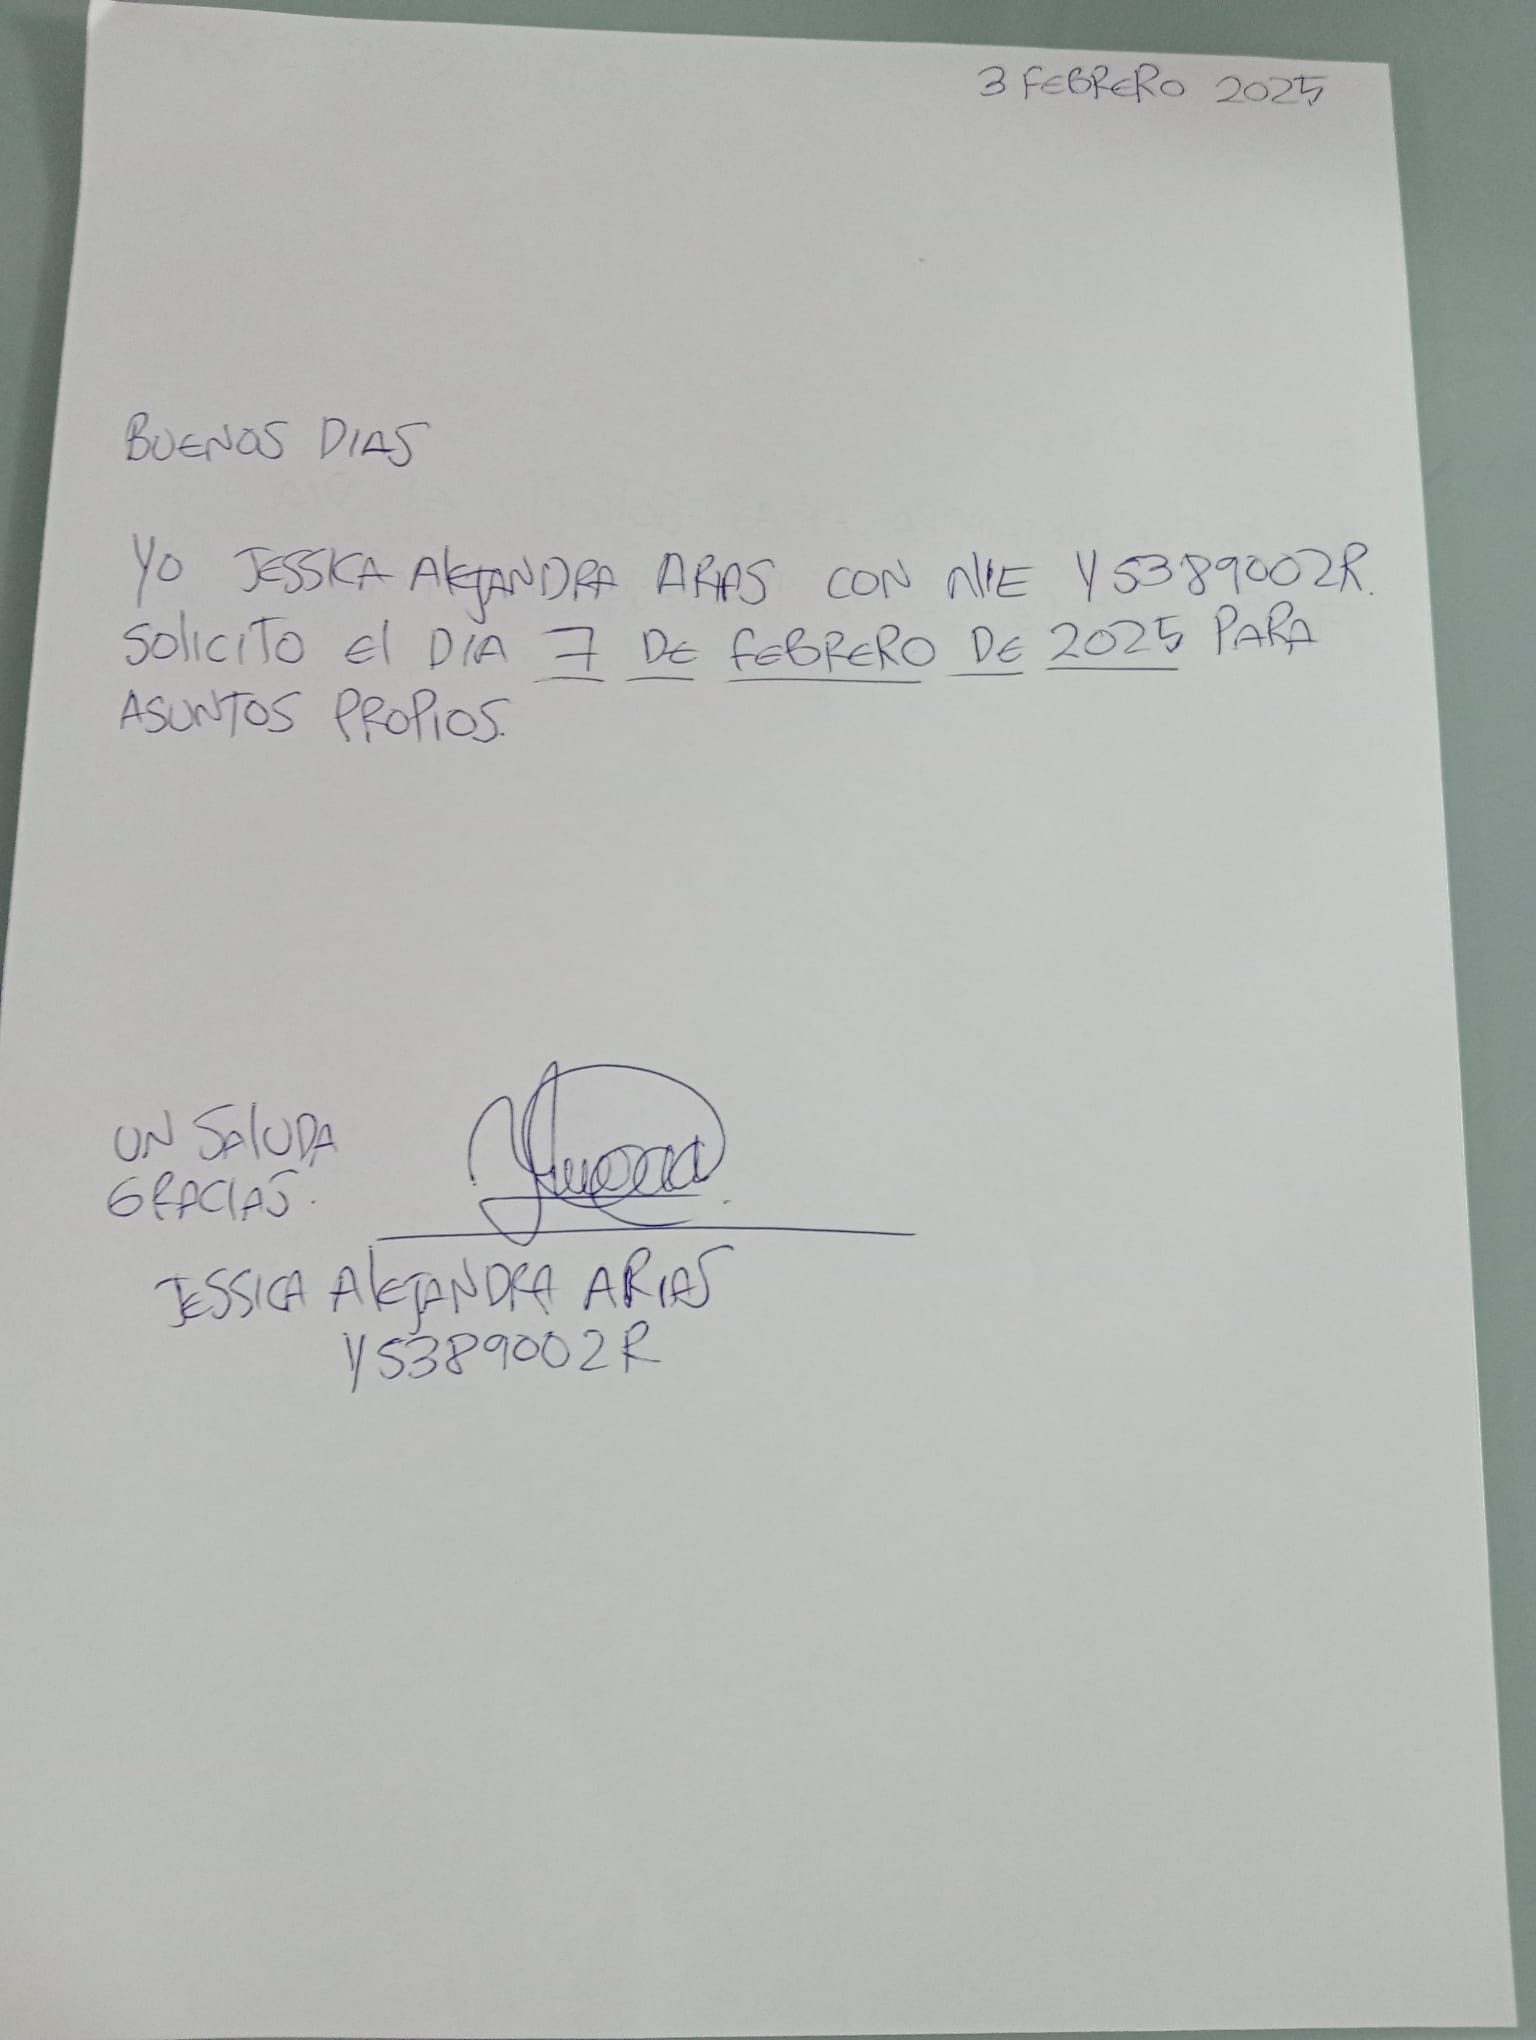 3 FEBRERO 2025
BUENOS DIAS
YO JESSICA AlEJANDRA ARIAS CON NIE Y5389002R.
SOlICITO El DIA 7 DE FEBRERO DE 2025 PARA
ASUNTOS PROPIOS.
UN SAlUDA
GRACIAS.
JESSICA AlEJANDRA ARIAS
Y5389002R